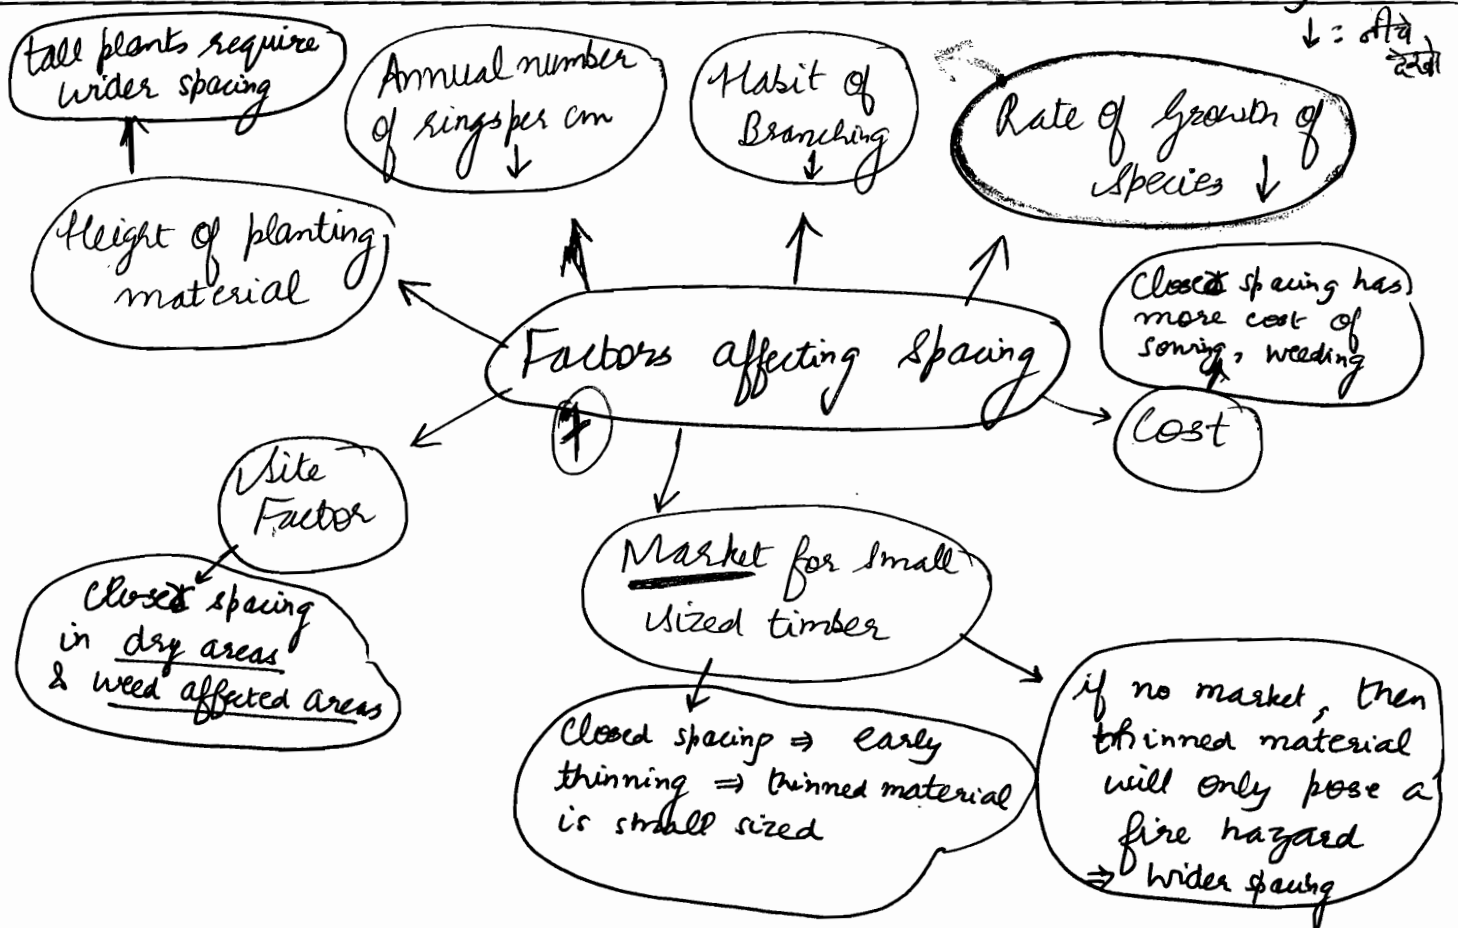 ↓ = नीचे
देखो
tall plants require
wider spacing
Annual number
of rings per cm
↓
Habit of
Branching
↓
Rate of Growth of
Species ↓
Height of planting
material
Closed spacing has
more cost of
sowing, weeding
Factors affecting Spacing
7
Cost
Site
Factor
Closed spacing
in dry areas
& weed affected areas
Market for small
sized timber
Closed spacing ⇒ early
thinning ⇒ thinned material
is small sized
if no market, then
thinned material
will only pose a
fire hazard
⇒ wider spacing